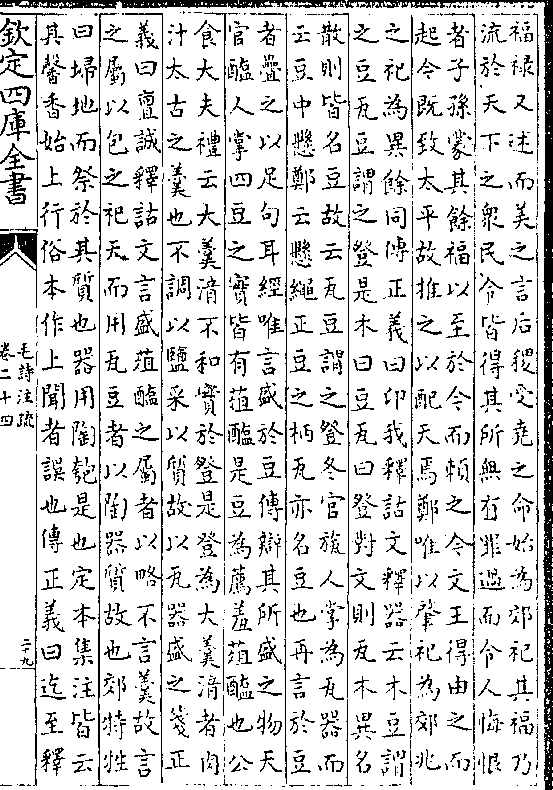 福祿又述而美之言后稷受堯之命始為郊祀其福乃
流於天下之衆民令皆得其所無有罪過而令人悔恨
者子孫蒙其餘福以至於今而賴之今文王得由之而
起今既致太平故推之以配天焉鄭唯以肇祀為郊兆
之祀為異餘同傳正義曰卬我釋詁文釋器云木豆謂
之豆瓦豆謂之登是木曰豆瓦曰登對文則瓦木異名
散則皆名豆故云瓦豆謂之登冬官旊人掌為瓦器而
云豆中懸鄭云懸繩正豆之柄瓦亦名豆也再言於豆
者疊之以足句耳經唯言盛於豆傳辯其所盛之物天
官醢人掌四豆之實皆有葅醢是豆為薦羞葅醢也公
食大夫禮云大羮湆不和實於登是登為大羮湆者肉
汁大古之羮也不調以鹽采以質故以瓦器盛之箋正
義曰亶誠釋詁文言盛葅醢之屬者以略不言羮故言
之屬以包之祀天而用瓦豆者以陶器質故也郊特牲
曰埽地而祭於其質也器用陶匏是也定本集注皆云
其馨香始上行俗本作上聞者誤也傳正義曰迄至釋
欽定四庫全書
毛詩注疏
卷二十四
二十九